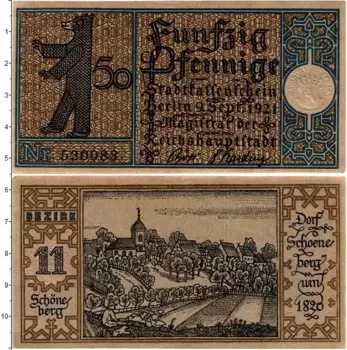 Fünfzig
Pfennige
50
Stadtkassenschein
Berlin 9. Sept. 1921
Magistrat der
Reichshauptstadt
Nr. 530083
BEZIRK
11
Schöneberg
Dorf
Schoeneberg
um
1820
1
2
3
4
5
6
7
8
9
10